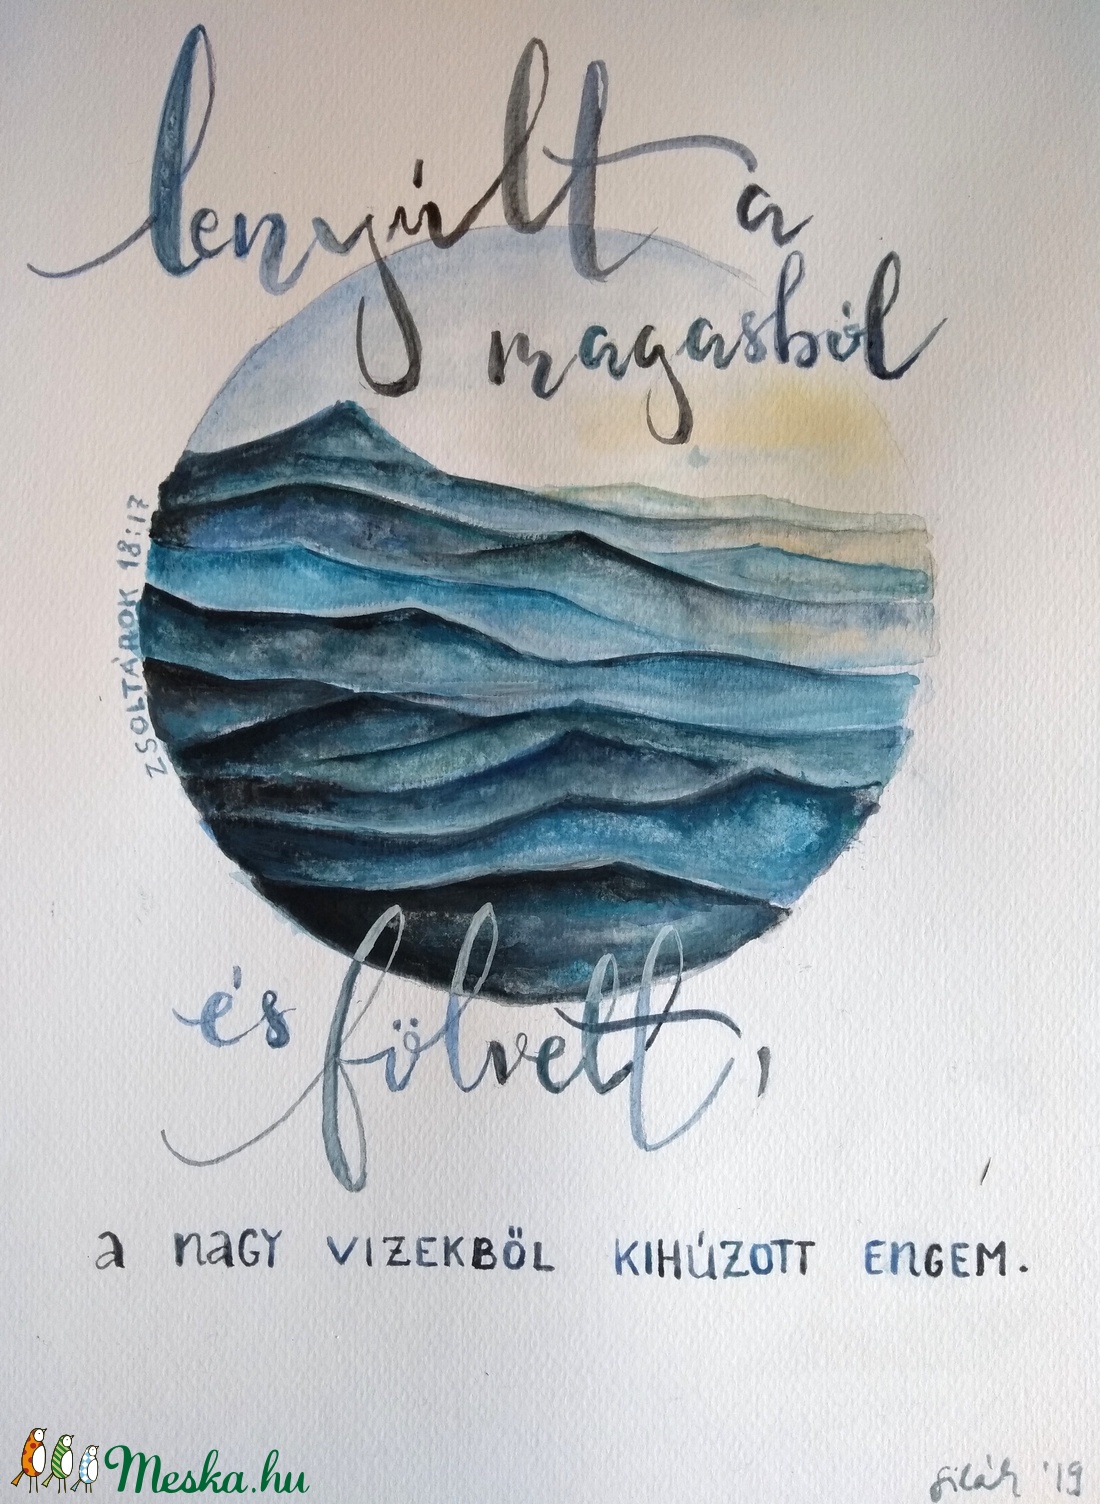 lenyúlt a
magasból
ZSOLTÁROK 18:17
és fölvett,
a nagy vizekből kihúzott engem.
Meska.hu
'19